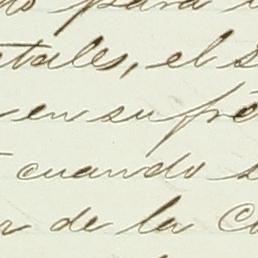 do para
tales, el s
en su fré
cuando s
r de la Co